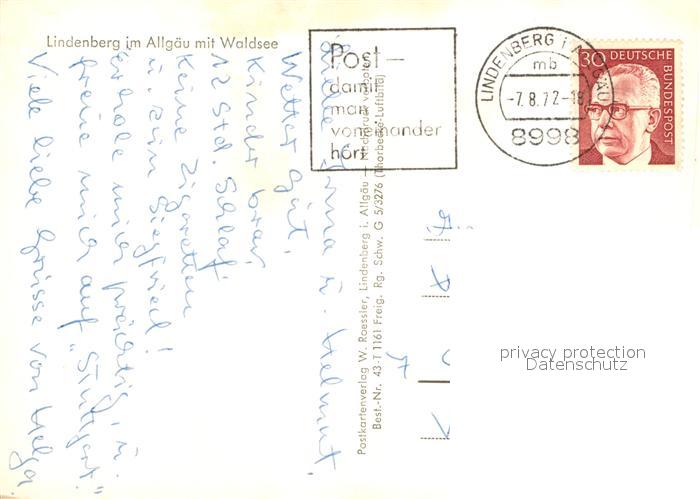 Lindenberg im Allgäu mit Waldsee
Post –
damit
man
voneinander
hört
LINDENBERG i ALLGÄU
mb
-7.8.72-18
8998
30 DEUTSCHE
BUNDESPOST
Postkartenverlag W. Roessler, Lindenberg i. Allgäu – Nachdruck verboten
Best.-Nr. 43-T 1161 Freig. Rg. Schw. G 5/3276 (Thorbecke-Luftbild)
u. Helmut.
Wetter gut,
Kinder brav,
12 Std. Schlaf,
Keine Zigaretten
u. kein Siegfried!
Erhole mich prächtig, u.
freue mich auf "Stuttgart."
Viele liebe Grüsse von Helga
privacy protection
Datenschutz